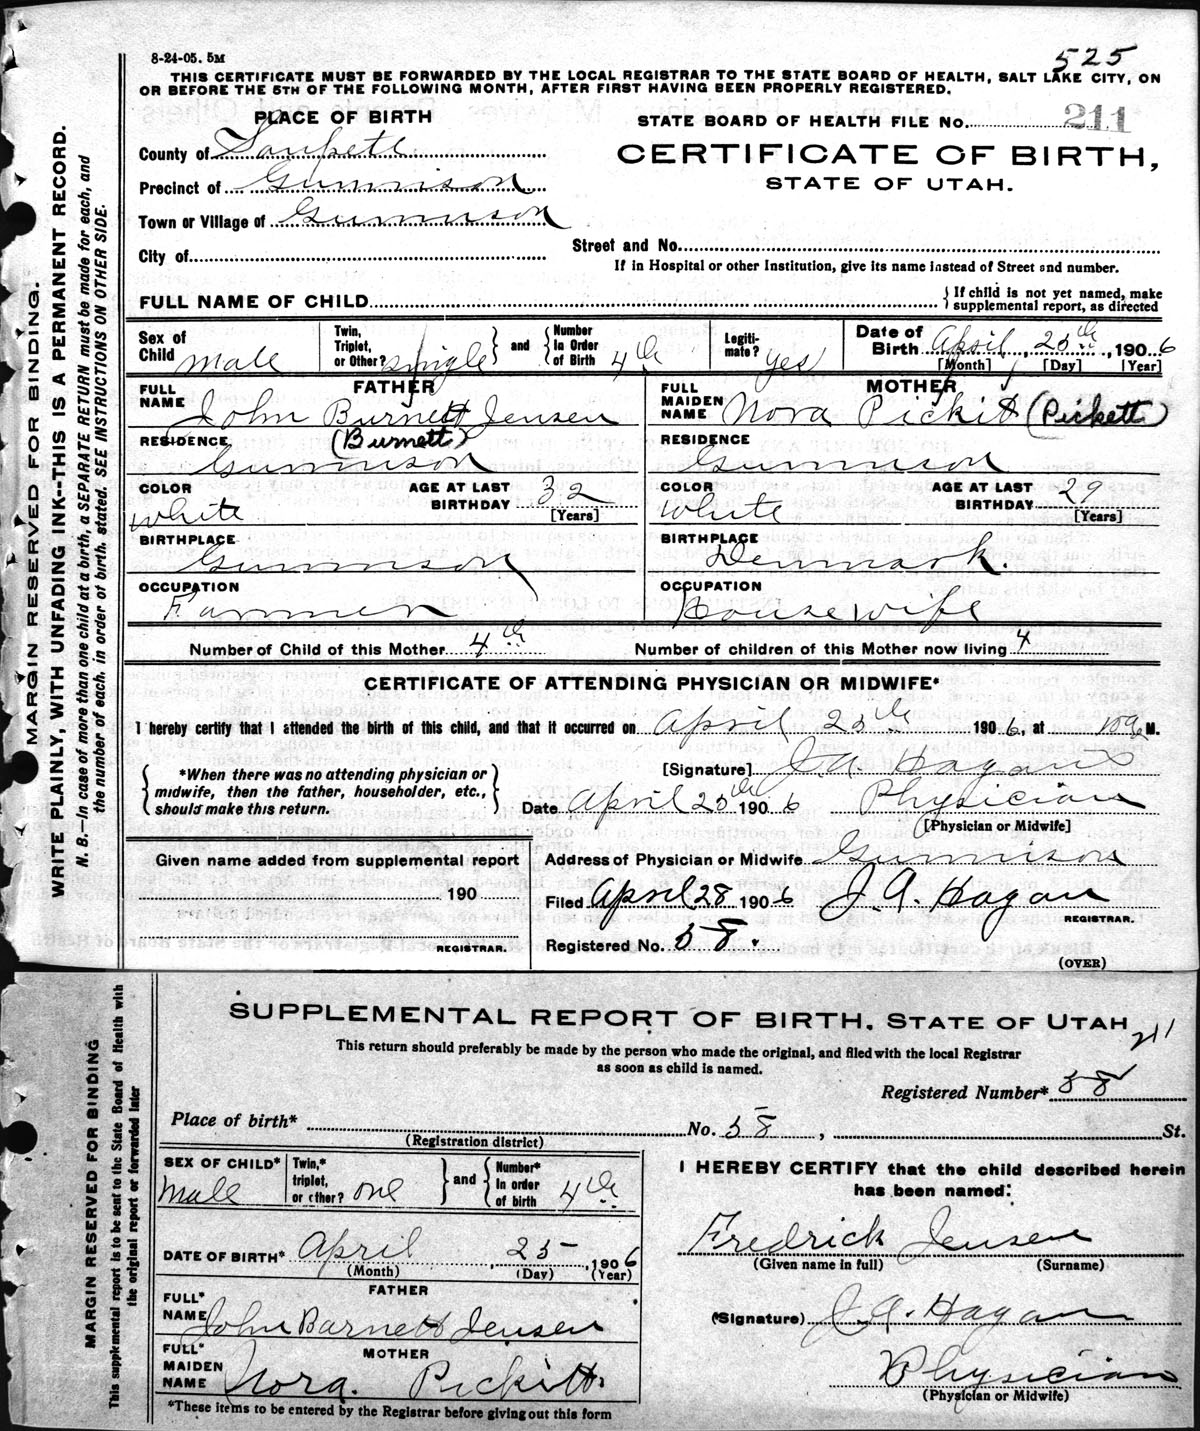 8-24-05. 5M
525
THIS CERTIFICATE MUST BE FORWARDED BY THE LOCAL REGISTRAR TO THE STATE BOARD OF HEALTH, SALT LAKE CITY, ON
OR BEFORE THE 5TH OF THE FOLLOWING MONTH, AFTER FIRST HAVING BEEN PROPERLY REGISTERED.
PLACE OF BIRTH
STATE BOARD OF HEALTH FILE No. 211
County of Sanpete
CERTIFICATE OF BIRTH,
STATE OF UTAH.
Precinct of Gunnison
Town or Village of Gunnison
City of
Street and No.
If in Hospital or other Institution, give its name instead of Street and number.
FULL NAME OF CHILD
{ If child is not yet named, make
supplemental report, as directed
Sex of Child Male
Twin, Triplet, or Other? single } and { Number In Order of Birth 4th
Legitimate? yes
Date of Birth April, 25th, 1906
[Month] [Day] [Year]
FATHER
FULL NAME John Burnett Jensen
(Burnett)
RESIDENCE Gunnison
COLOR White
AGE AT LAST BIRTHDAY 32
[Years]
BIRTHPLACE Gunnison
OCCUPATION Farmer
MOTHER
FULL MAIDEN NAME Nora Pickit (Pickett)
RESIDENCE Gunnison
COLOR White
AGE AT LAST BIRTHDAY 29
[Years]
BIRTHPLACE Denmark.
OCCUPATION Housewife
Number of Child of this Mother 4th
Number of children of this Mother now living 4
CERTIFICATE OF ATTENDING PHYSICIAN OR MIDWIFE*
I hereby certify that I attended the birth of this child, and that it occurred on April 25th 1906, at 10 a M.
{ *When there was no attending physician or
midwife, then the father, householder, etc.,
should make this return. }
[Signature] J. A. Hagan
Date April 25th 1906 Physician
[Physician or Midwife]
Given name added from supplemental report
190
REGISTRAR.
Address of Physician or Midwife Gunnison
Filed April 28 1906 J. A. Hagan
REGISTRAR.
Registered No. 58.
(OVER)
MARGIN RESERVED FOR BINDING.
WRITE PLAINLY, WITH UNFADING INK--THIS IS A PERMANENT RECORD.
N. B.—In case of more than one child at a birth, a SEPARATE RETURN must be made for each, and
the number of each, in order of birth, stated. SEE INSTRUCTIONS ON OTHER SIDE.
SUPPLEMENTAL REPORT OF BIRTH, STATE OF UTAH
211
This return should preferably be made by the person who made the original, and filed with the local Registrar
as soon as child is named.
Registered Number* 58
Place of birth* No. 58, St.
(Registration district)
SEX OF CHILD* Male
Twin,* triplet, or other? one } and { Number* In order of birth 4th
DATE OF BIRTH* April, 25, 1906
(Month) (Day) (Year)
FATHER
FULL* NAME John Barnett Jensen
MOTHER
FULL* MAIDEN NAME Nora. Pickitt
*These items to be entered by the Registrar before giving out this form
I HEREBY CERTIFY that the child described herein
has been named:
Fredrick Jensen
(Given name in full) (Surname)
(Signature) J. A. Hagan
Physician
(Physician or Midwife)
MARGIN RESERVED FOR BINDING
This supplemental report is to be sent to the State Board of Health with
the original report or forwarded later